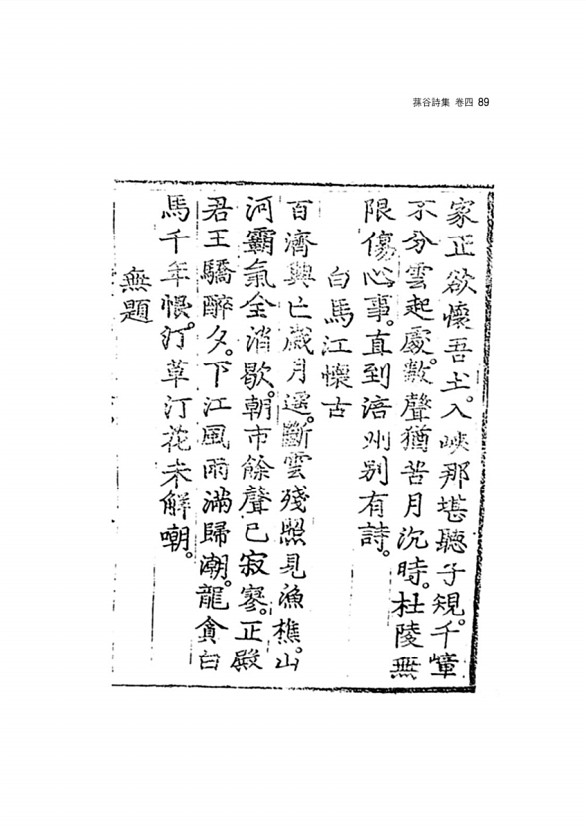 蓀谷詩集 卷四 89
家正欲懷吾土。入峽那堪聽子規。千嶂
不分雲起處。數聲猶苦月沉時。杜陵無
限傷心事。直到涪州別有詩。
白馬江懷古
百濟興亡歲月遙。斷雲殘照見漁樵。山
河霸氣全消歇。朝市餘聲已寂寥。正殿
君王驕醉夕。下江風雨滿歸潮。龍貪白
馬千年恨。汀草汀花未解嘲。
無題